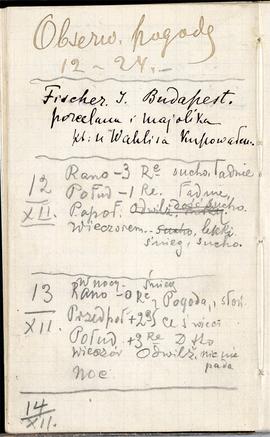 Obserw. pogody
12 – 24.–
Fischer. J. Budapest.
porcelana i majolika
Wahlisa Kupowałem.
12 Rano –3 Re sucho. ładnie
XII. Połud –1 Re. ładnie,
Popoł. sucho.
Wieczorem. sucho, lekki
śnieg, sucho.
W nocy śnieg
13 Rano –0 Re Pogoda, słoń.
XII. Przedpoł +2
Połud. +3 Re
wieczór Odwilż, nie
pada
noc
14
XII.